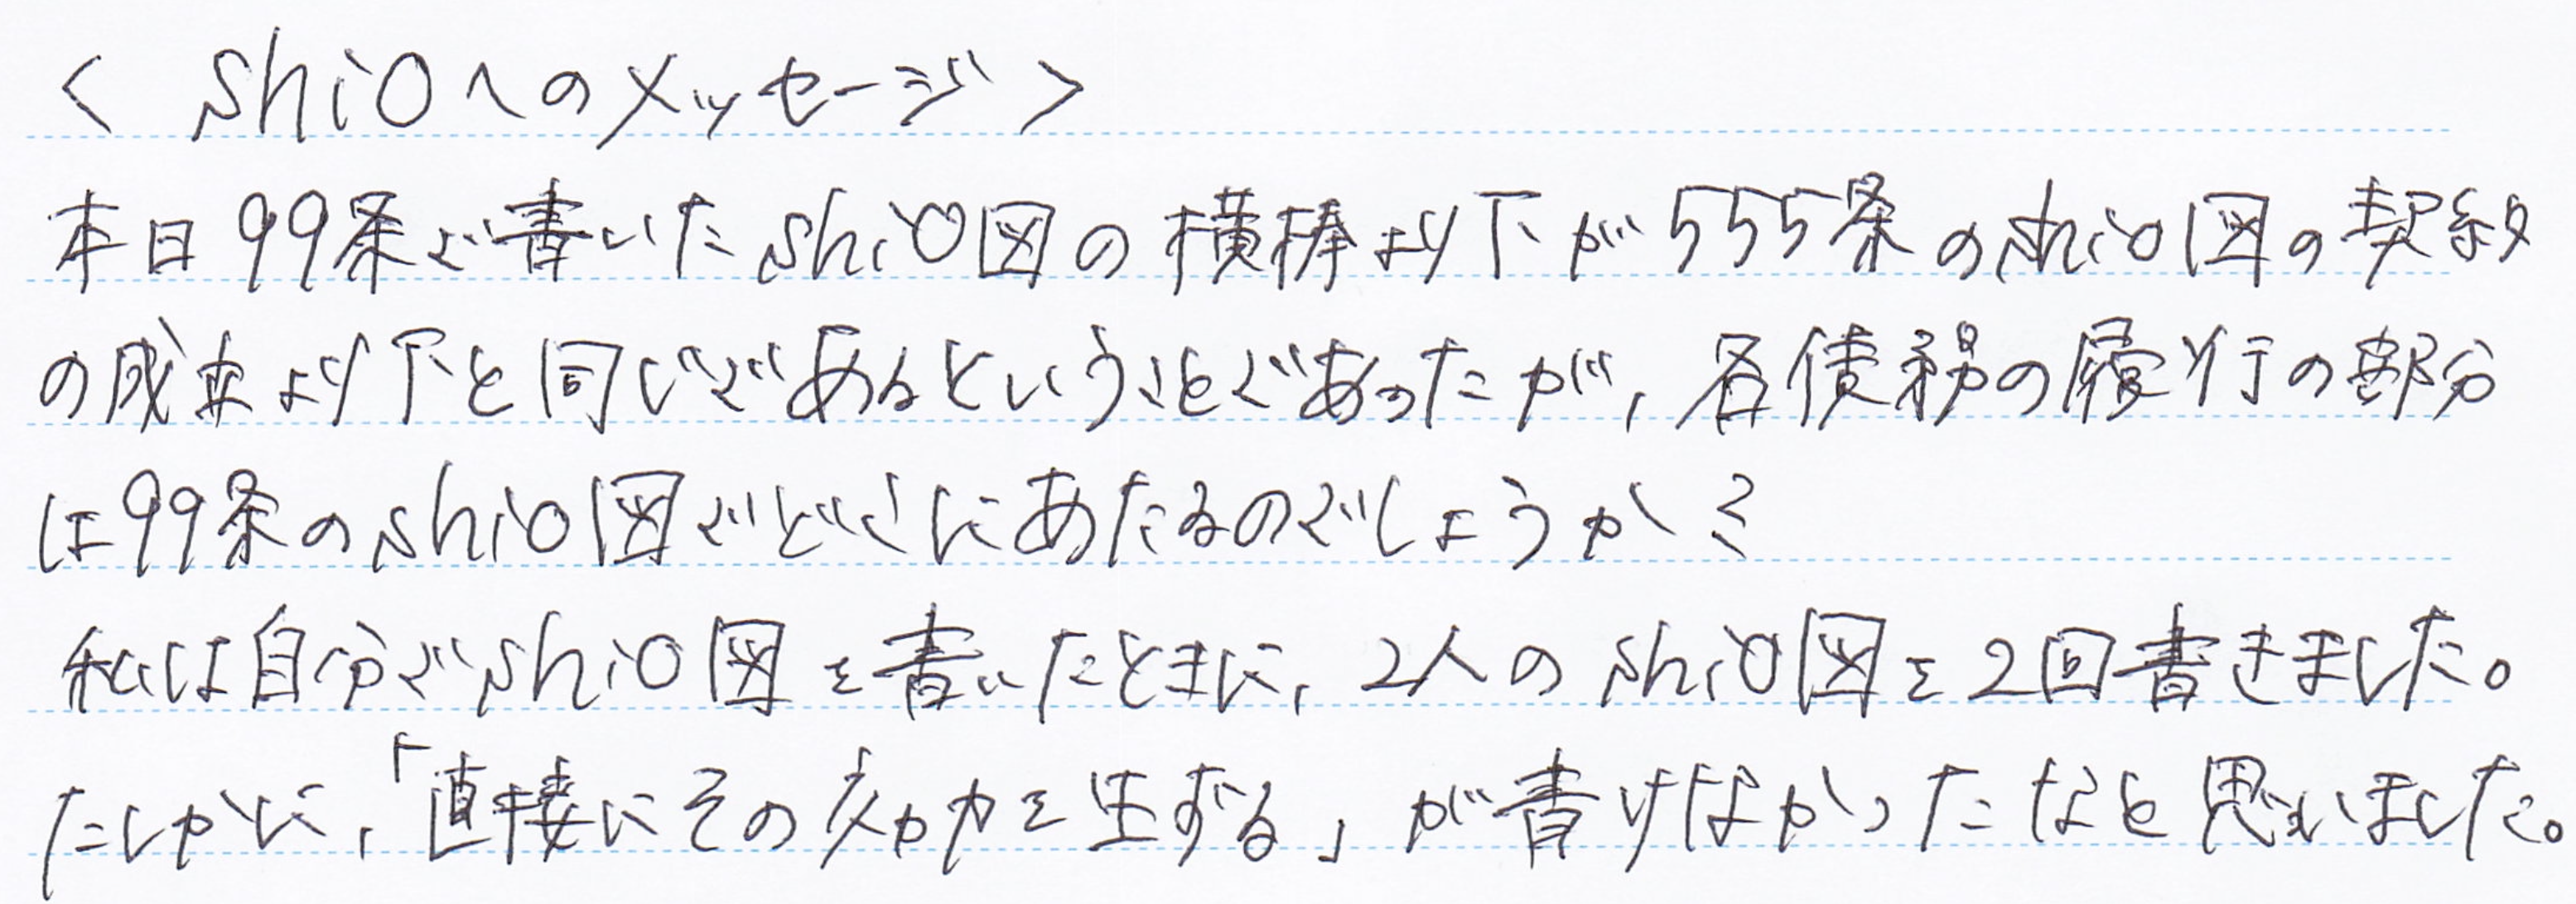 < shioへのメッセージ >
本日99条で書いたshio図の横棒より下が555条のshio図の契約
の成立より下と同じであるということであったが，各債務の履行の部分
は99条のshio図でどこにあたるのでしょうか？
私は自分でshio図を書いたときに，2人のshio図を2回書きました。
たしかに，「直接にその効力を生ずる」が書けなかったなと思いました。